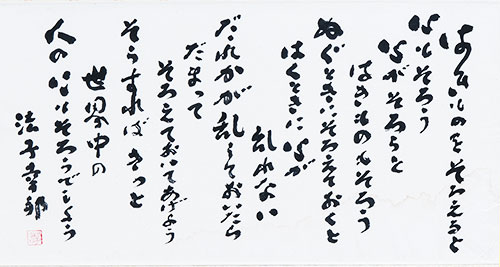 はきものをそろえると
心もそろう
心がそろうと
はきものもそろう
ぬぐときにそろえておくと
はくときに心が
乱れない
だれかが乱しておいたら
だまって
そろえておいてあげよう
そうすればきっと
世界中の
人の心もそろうでしょう